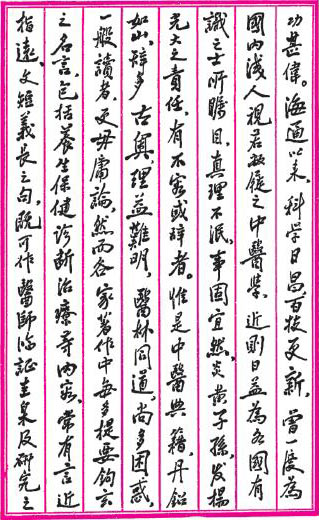 功甚偉。海通以来，科学日昌百技更新，曾一度為
國内淺人視君敝屣之中醫學，近則日益為各國有
識之士所矚目，真理不泯，事固宜然。炎黄子孫，发揚
光大之責任，有不容或辞者。惟是中醫典籍，丹鉛
如山，辞多古奥，理益難明，醫林同道，尚多困惑，
一般讀者，更毋庸論。然而各家著作中每多提要鉤玄
之名言，包括养生保健诊断治療等内容，常有言近
指遠，文雖義長之句，既可作醫師临証圭臬及研究之